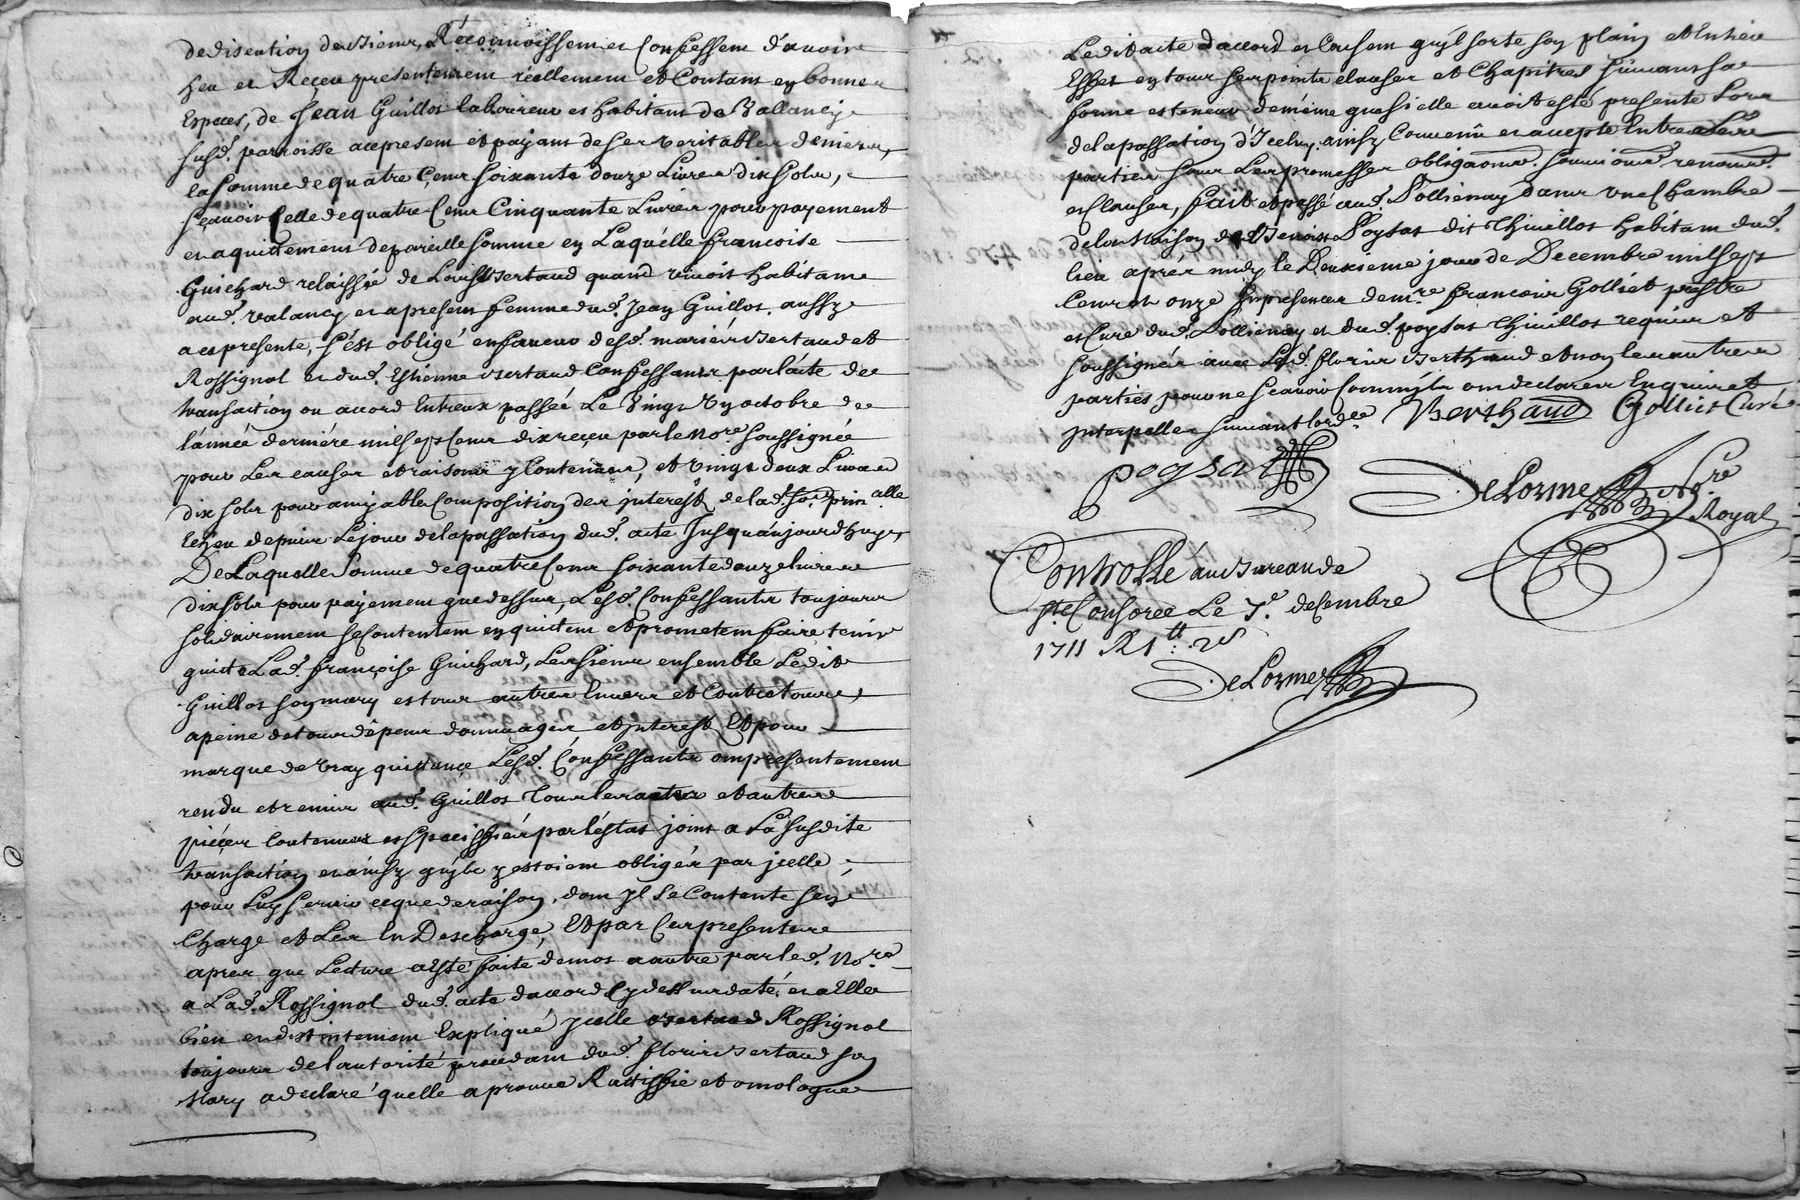 de discution de biens, Reconnoissent et Confessent d'avoir
heu et Receu presentement reellement et Contant en bonnes
Especes, de Jean Guillot laboureur et habitant de Vallancy
susd. parroisse acepresent et payant de ses veritables deniers,
la somme de quatre Cent soixante douze Livres dix solz,
scavoir Celle de quatre Cent Cinquante Livres pour payement
et aquittement de pareille somme en Laquelle francoise
Guichard relaissée de Louis Bertaud quand vivoit habitant
aud. valancy et apresent femme dud. Jean Guillot, aussy
acepresente, s'est obligé en faveur desd. mariés Bertaud et
Rossignol et dud. Estienne Bertaud Confessants par l'acte de
transaction ou acord Entreux passée Le vingt un octobre de
l'année derniére mil sept Cent dix receu par le No.re soussignée
pour Les causes et raisons y Contenues, et vingt deux Livres
dix solz pour amiable Composition des jnterest de lad. so. prin.alle
Echeu depuis Le jour de la passation dud. acte Jusqu'aujourdhuy,
De Laquelle somme de quatre Cent soixante douze livres
dix solz pour payement que dessus, Lesd. Confessants toujours
solidairement se Contentent en quittent et prometent faire tenir
quitte Lad. françoise Guichard, Les siens ensemble Ledit
Guillot son mary et tous autres Envers et Contre tous,
a peine de tous dépens dommages et jnterest, Et pour
marque de vray quittance Lesd. Confessants ont presentement
rendu et remis aud. Guillot Tous les actes et autres
piéces Contenues et speciffiés par l'éstat joint a La susdite
transaction et ainsy qu'ilz y estoient obligés par jcelle,
pour Luy servir ceque de raison, dont jl se Contente sen
Charge et Les En Descharge, Et par Ces presentes
apres que Lecture a Esté faite de mot a autre par led. No.re
a Lad. Rossignol dud. acte dacord Cy dessus daté, et a Elle
bien et distintement Expliqué jcelle Rossignol
toujours de l'autorité procedant dud. floris Bertaud son
Mary a declaré quelle a prouve Rattiffie et omologue
Ledit acte dacord et Consent qu'jl sorte son plain et Entier
Effet en tous ses points clauses et Chapitres suivant sa
forme et teneur de méme que si elle avoit esté presente Lors
de la passation d'Jceluy. ainsy Convenu et accepte Entre Les
parties sous Les promesses obligaons. soumions. renons.
et Clauses, fait et passé aud. Sollienay dans une Chambre
de la Maison de Benoist Poysat dit Thivillot habitant dud.
lieu aprés midy le Deuxieme jour de Decembre mil sept
Cent et onze En presence de m.re francois Golliet prestre
et Cure dud. Sollienay et dud. poysat Thivillot requis et
soussignés avec Led. floris Berthaud et non les autres
parties pour ne scavoir Comm'jls ont declarer Enquis et
jnterpellés suivant lord.ce Berthaud Golliet Curé
poysat
DeLorme No.re
Royal
Controllé au Bureau de
St. Consorce Le 7.e desembre
1711 R 1# 2s
DeLorme